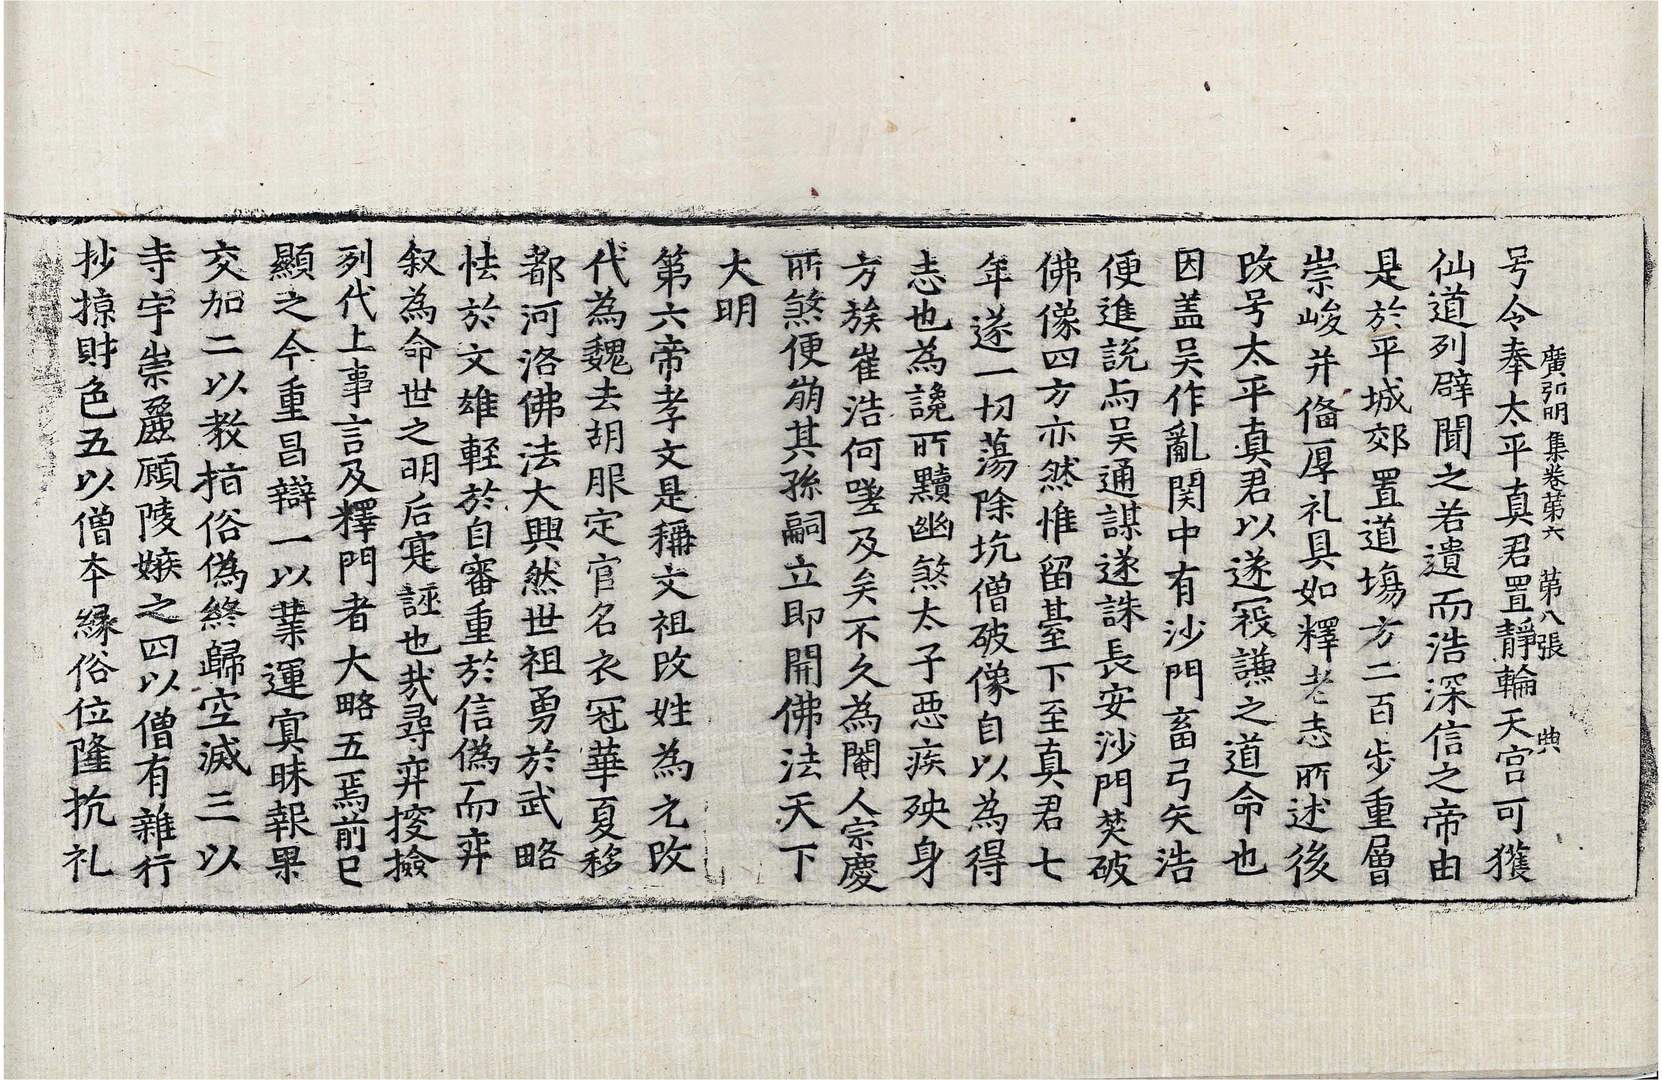 廣弘明集卷第六　第八張　典
号令奉太平真君置靜輪天宮可獲
仙道列辟聞之若遺而浩深信之帝由
是於平城郊置道塲方二百步重層
崇峻并俻厚礼具如釋老志所述後
改号太平真君以遂寇謙之道命也
因盖吴作亂関中有沙門畜弓矢浩
便進說与吴通謀遂誅長安沙門焚破
佛像四方亦然惟留臺下至真君七
年遂一切蕩除坑僧破像自以為得
志也為讒所黷幽煞太子惡疾殃身
方族崔浩何嗟及矣不久為閹人宗慶
所煞便崩其孫嗣立即開佛法天下
大明
第六帝孝文是稱文祖改姓為元改
代為魏去胡服定官名衣冠華夏移
都河洛佛法大興然世祖勇於武略
怯於文雄輕於自審重於信偽而弃
叙為命世之明后寔誣也哉尋弃挍撿
列代上事言及釋門者大略五焉前已
顯之今重昌辯一以業運冥昧報果
交加二以教指俗偽終歸空滅三以
寺宇崇麗顧陵嫉之四以僧有雜行
抄掠財色五以僧本緣俗位隆抗礼